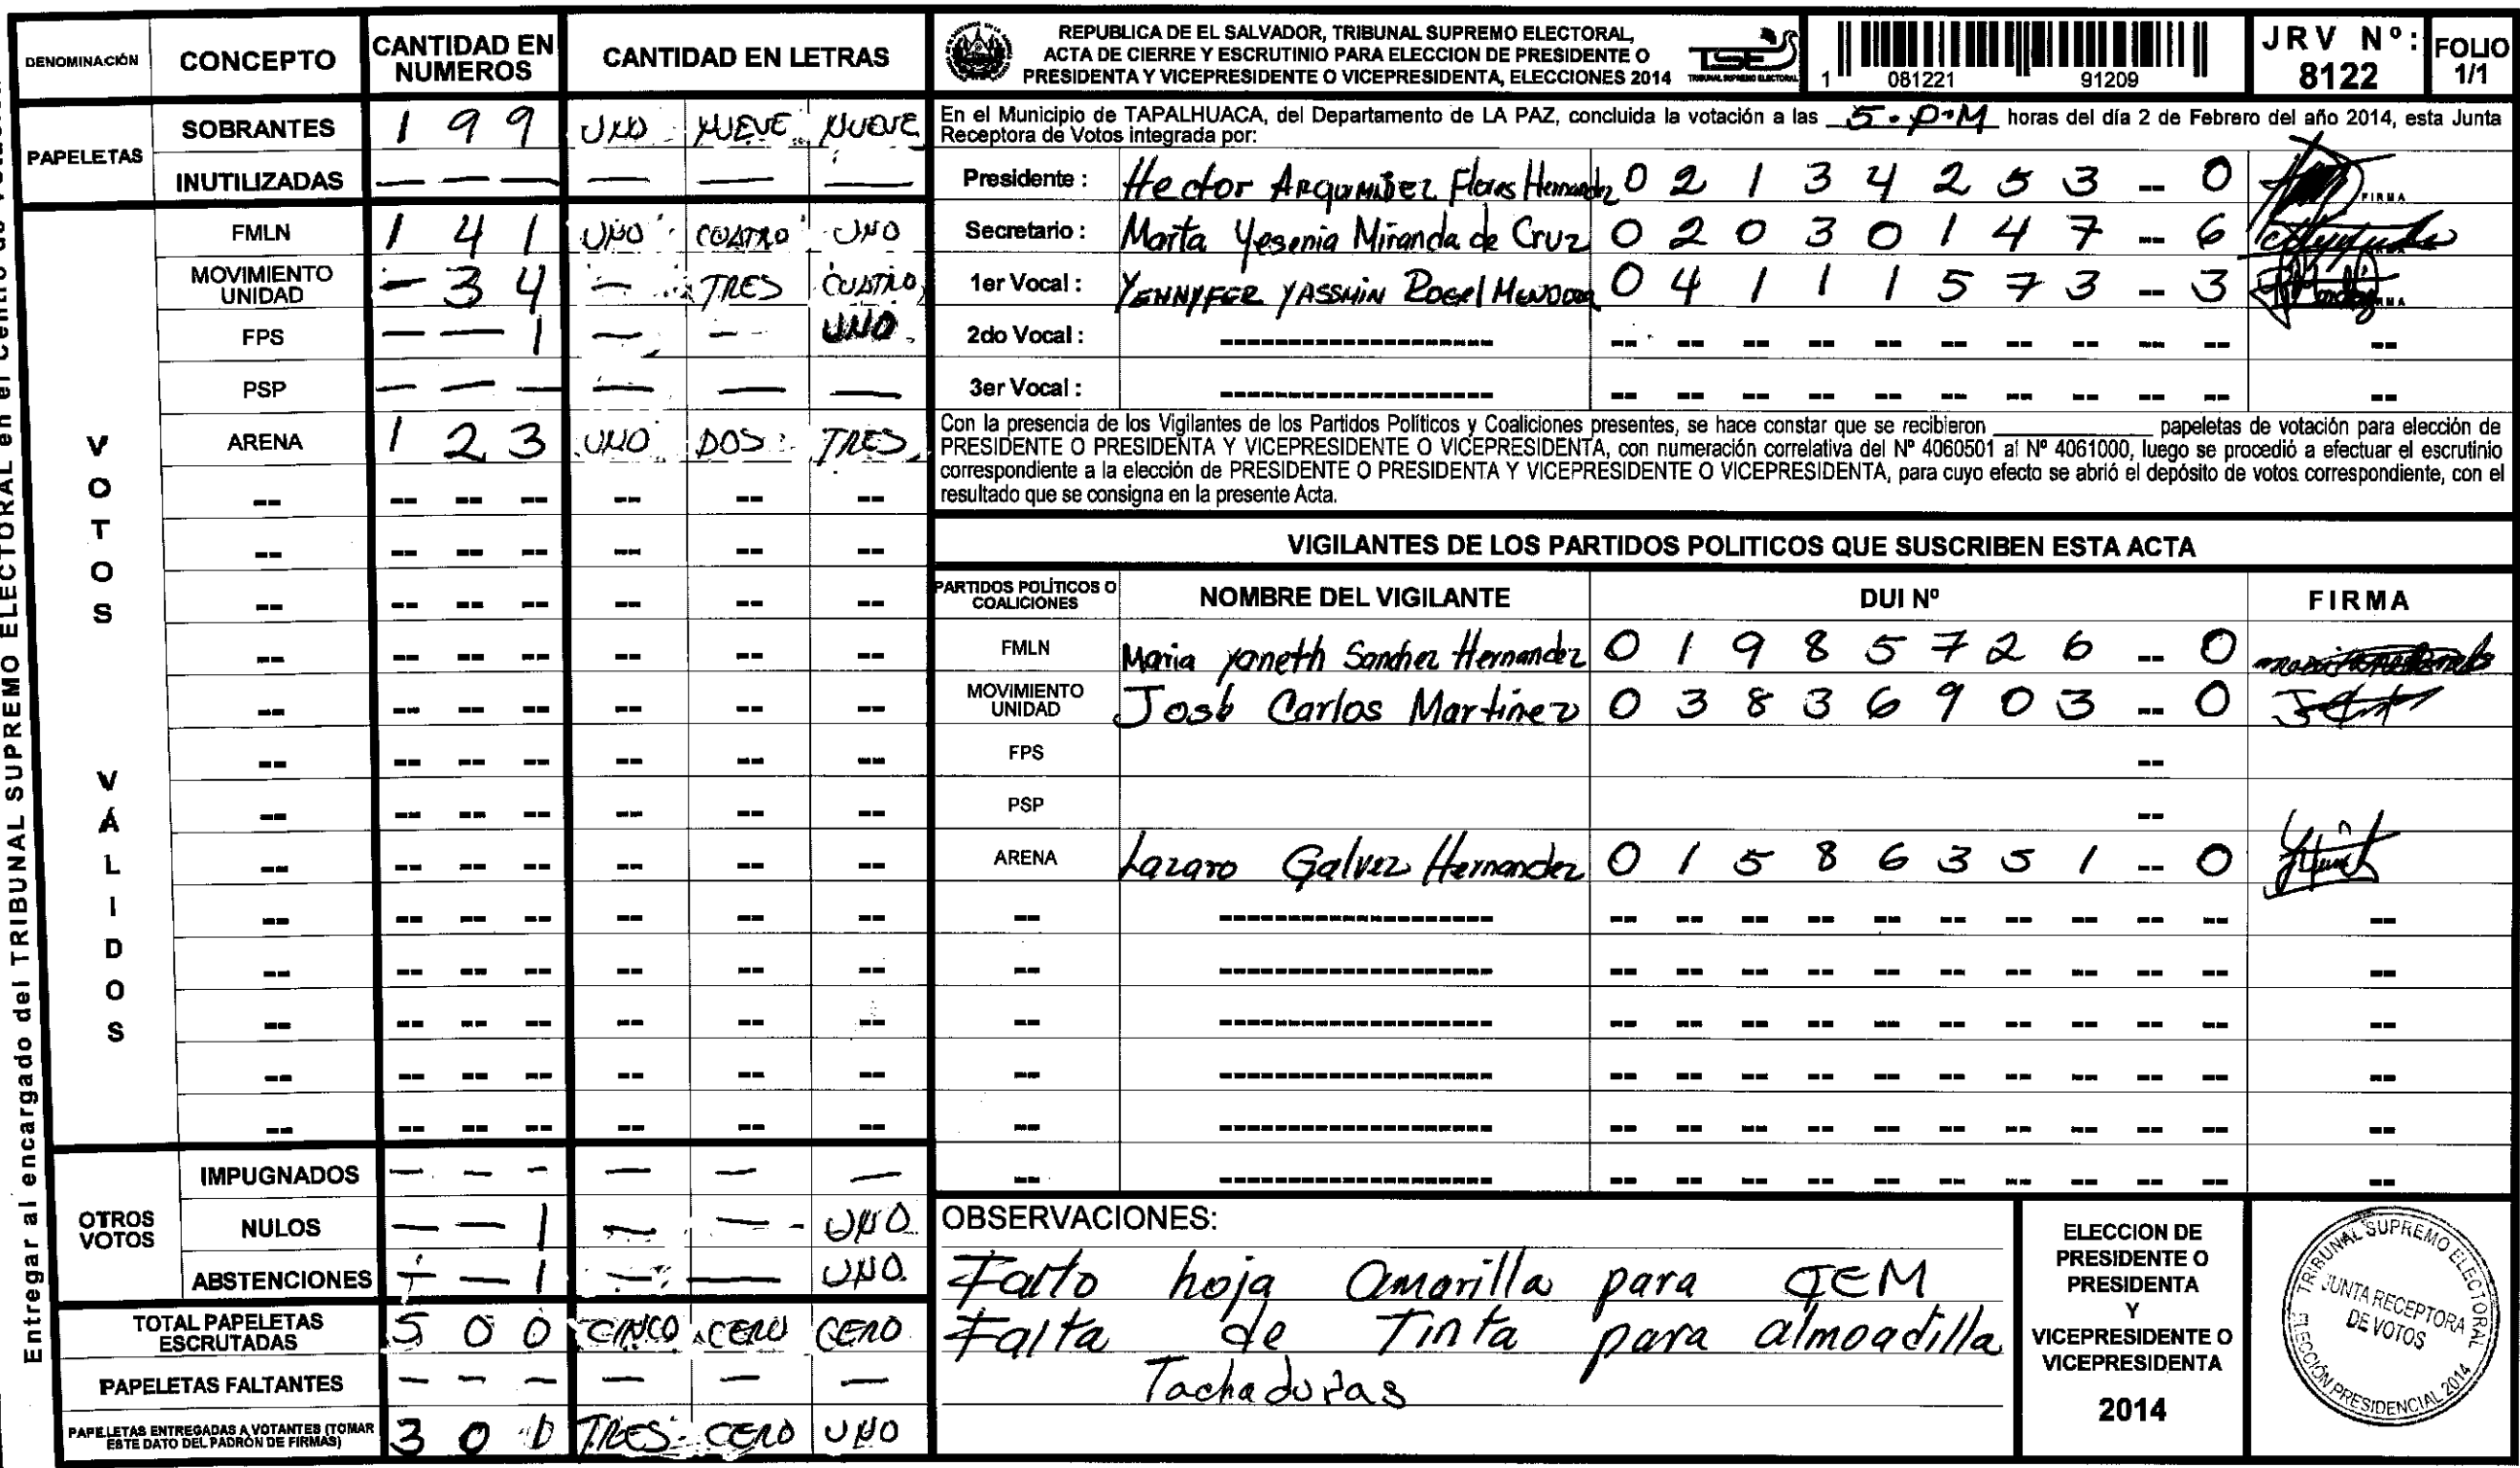 Entregar al encargado del TRIBUNAL SUPREMO ELECTORAL en el centro de
DENOMINACIÓN CONCEPTO CANTIDAD EN NUMEROS CANTIDAD EN LETRAS
PAPELETAS
SOBRANTES 1 9 9 UNO NUEVE NUEVE
INUTILIZADAS — — — — — —
VOTOS VÁLIDOS
FMLN 1 4 1 UNO CUATRO UNO
MOVIMIENTO UNIDAD - 3 4 — TRES CUATRO
FPS — — 1 — — UNO
PSP — — — — — —
ARENA 1 2 3 UNO DOS TRES
OTROS VOTOS
IMPUGNADOS — — — — — —
NULOS — — 1 — — UNO
ABSTENCIONES — — 1 — — UNO
TOTAL PAPELETAS ESCRUTADAS 5 0 0 CINCO CERO CERO
PAPELETAS FALTANTES — — — — — —
PAPELETAS ENTREGADAS A VOTANTES (TOMAR ESTE DATO DEL PADRÓN DE FIRMAS) 3 0 1 TRES CERO UNO
REPUBLICA DE EL SALVADOR, TRIBUNAL SUPREMO ELECTORAL,
ACTA DE CIERRE Y ESCRUTINIO PARA ELECCION DE PRESIDENTE O
PRESIDENTA Y VICEPRESIDENTE O VICEPRESIDENTA, ELECCIONES 2014
TSE
TRIBUNAL SUPREMO ELECTORAL
1 081221 91209
JRV Nº: 8122
FOLIO 1/1
En el Municipio de TAPALHUACA, del Departamento de LA PAZ, concluida la votación a las 5. P.M horas del día 2 de Febrero del año 2014, esta Junta
Receptora de Votos integrada por:
Presidente : Hector Arqumidez Flores Hernandez 0 2 1 3 4 2 5 3 -- 0 FIRMA
Secretario : Marta Yesenia Miranda de Cruz 0 2 0 3 0 1 4 7 -- 6
1er Vocal : YENNYFER YASSMIN Rogel Mendoza 0 4 1 1 1 5 7 3 -- 3
2do Vocal :
3er Vocal :
Con la presencia de los Vigilantes de los Partidos Políticos y Coaliciones presentes, se hace constar que se recibieron ________ papeletas de votación para elección de
PRESIDENTE O PRESIDENTA Y VICEPRESIDENTE O VICEPRESIDENTA, con numeración correlativa del Nº 4060501 al Nº 4061000, luego se procedió a efectuar el escrutinio
correspondiente a la elección de PRESIDENTE O PRESIDENTA Y VICEPRESIDENTE O VICEPRESIDENTA, para cuyo efecto se abrió el depósito de votos correspondiente, con el
resultado que se consigna en la presente Acta.
VIGILANTES DE LOS PARTIDOS POLITICOS QUE SUSCRIBEN ESTA ACTA
PARTIDOS POLÍTICOS O COALICIONES NOMBRE DEL VIGILANTE DUI Nº FIRMA
FMLN Maria yaneth Sanchez Hernandez 0 1 9 8 5 7 2 6 -- 0
MOVIMIENTO UNIDAD José Carlos Martinez 0 3 8 3 6 9 0 3 -- 0
FPS --
PSP --
ARENA Lazaro Galvez Hernandez 0 1 5 8 6 3 5 1 -- 0
OBSERVACIONES:
Falto hoja Amarilla para JEM
Falta de Tinta para almoadilla
Tachaduras
ELECCION DE
PRESIDENTE O
PRESIDENTA
Y
VICEPRESIDENTE O
VICEPRESIDENTA
2014
TRIBUNAL SUPREMO ELECTORAL
JUNTA RECEPTORA
DE VOTOS
ELECCIÓN PRESIDENCIAL 2014